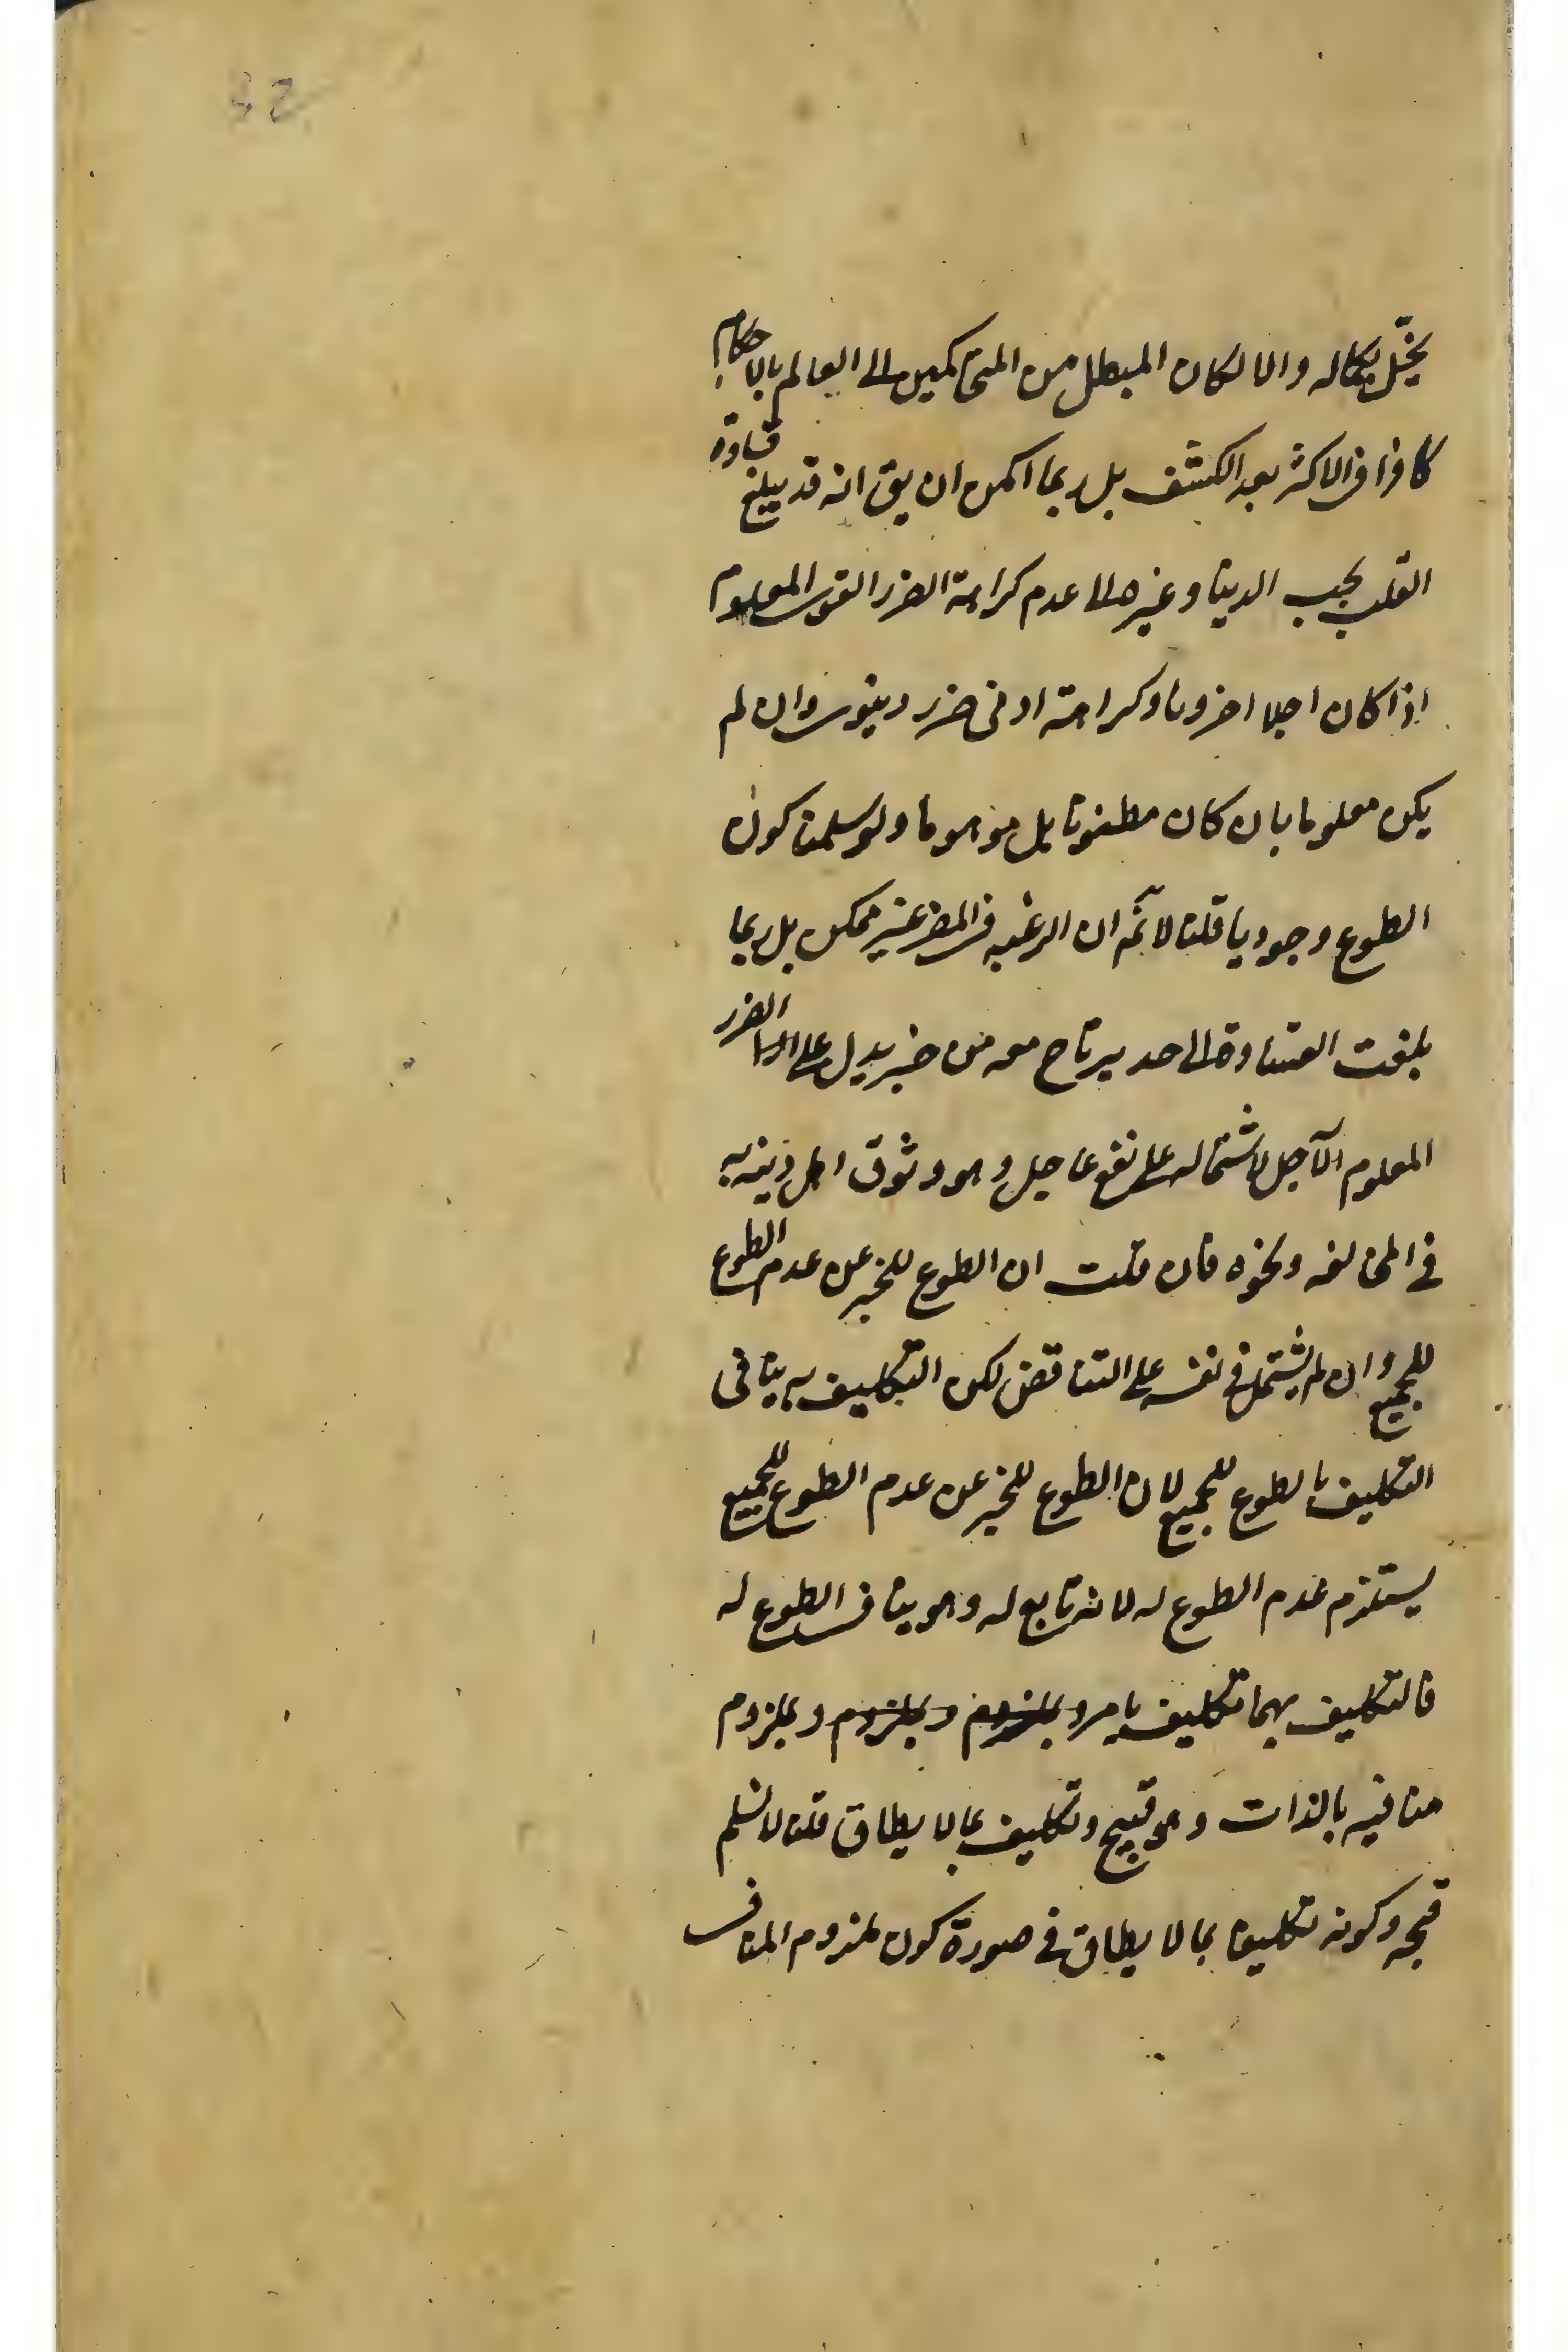 32
يخل بكماله والا لكان المبطل من المتحاكمين الى العالم بالاحكام
كافرا فى الاكثر بعد الكشف بل ربما امكن ان يق انه قد يبلغ قساوة
القلب بحب الدنيا وغيره الى عدم كراهة الضرر القوى المعلوم
اذا كان اجلا اخرويا وكراهة ادنى ضرر دنيوى وان لم
يكن معلوما بان كان مظنونا بل موهوما ولو سلمنا كون
الطوع وجوديا قلنا لا نم ان الرغبه فى المضر غير ممكن بل ربما
بلغت القساوة الى حد يرتاح معه من خبر يدل على الضرر
المعلوم الآجل لاشتماله على نفع عاجل وهو وثوق اهل دينه به
فى المخالفه ونحوه فان قلت ان الطوع للخبر عن عدم الطوع
للجميع وان لم يشتمل فى نفسه على التناقض لكن التكليف به ينافى
التكليف بالطوع للجميع لان الطوع للخبر عن عدم الطوع للجميع
يستلزم عدم الطوع له لانه تابع له وهو ينافى الطوع له
فالتكليف بهما تكليف بامر وبملزوم وبملزوم وبملزوم
منافيه بالذات وهو قبيح وتكليف بما لا يطاق قلنا لا نسلم
قبحه وكونه تكليفا بما لا يطاق فى صورة كون ملزوم المنافى